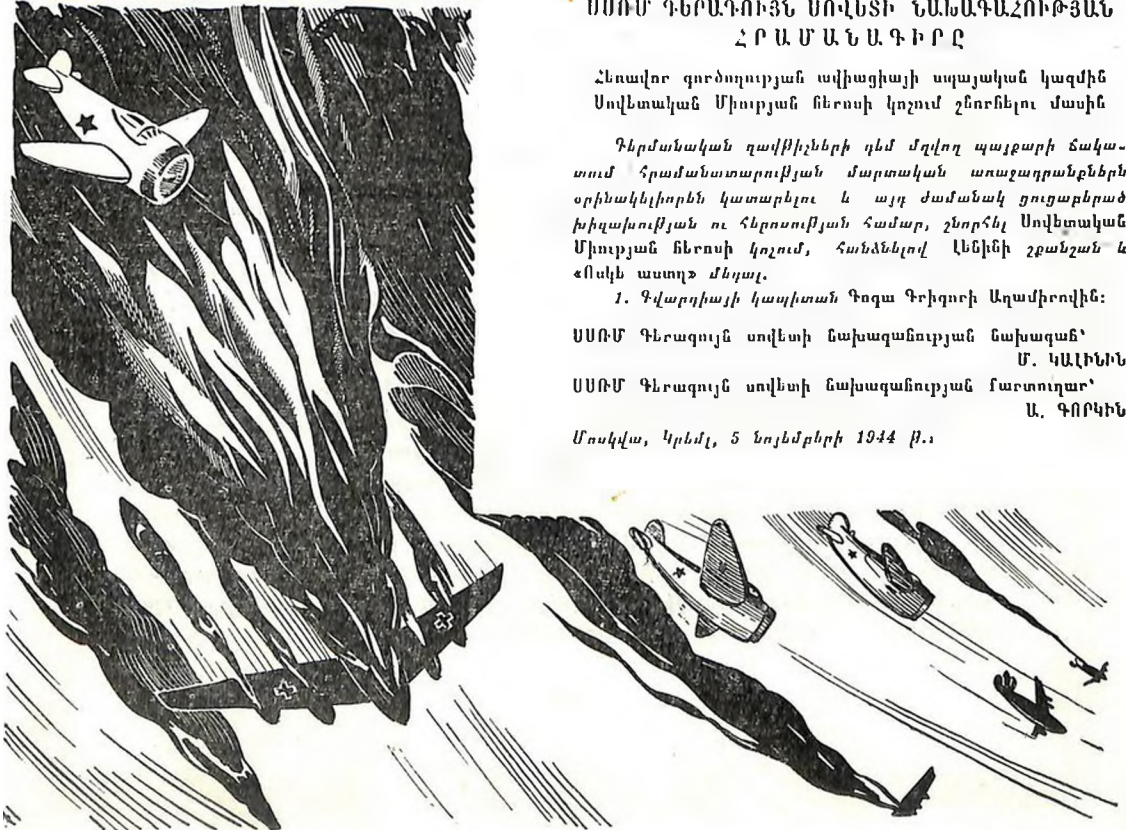 ՍՍՌՄ ԳԵՐԱԳՈՒՅՆ ՍՈՎԵՏԻ ՆԱԽԱԳԱՀՈՒԹՅԱՆ
ՀՐԱՄԱՆԱԳԻՐԸ
Հեռավոր գործողության ավիացիայի սպայական կազմին
Սովետական Միության հերոսի կոչում շնորհելու մասին
Գերմանական զավթիչների դեմ մղվող պայքարի ճակա-
տում հրամանատարության մարտական առաջադրանքներն
օրինակելիորեն կատարելու և այդ ժամանակ ցուցաբերած
խիզախության ու հերոսության համար, շնորհել Սովետական
Միության հերոսի կոչում, հանձնելով Լենինի շքանշան և
«Ոսկե աստղ» մեդալ.
1. Գվարդիայի կապիտան Գոգա Գրիգորի Աղամիրովին:
ՍՍՌՄ Գերագույն սովետի նախագահության նախագահ՝
Մ. ԿԱԼԻՆԻՆ
ՍՍՌՄ Գերագույն սովետի նախագահության քարտուղար՝
Ա. ԳՈՐԿԻՆ
Մոսկվա, Կրեմլ, 5 նոյեմբերի 1944 թ.: